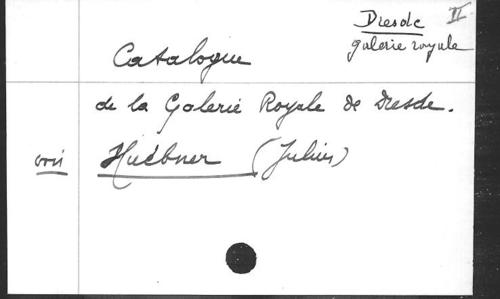 Dresde II
galerie royale
Catalogue
de la Galerie Royale de Dresde.
voir Huebner (Julius)